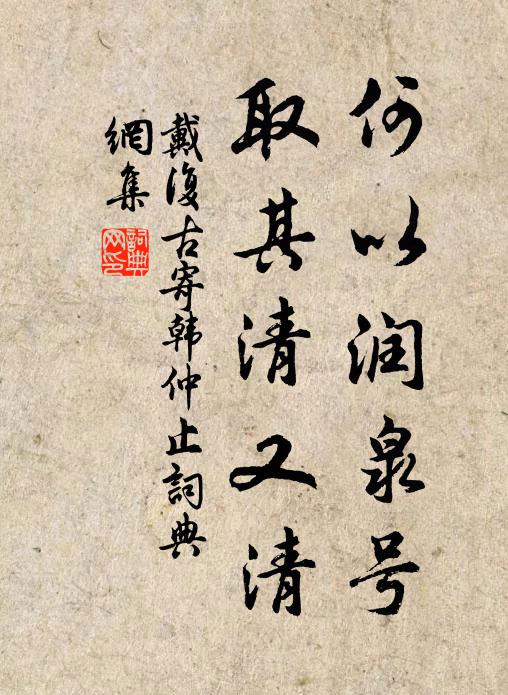 何以润泉号
取其清又清
戴復古寄韩仲止詞典
網集
詞典
网印